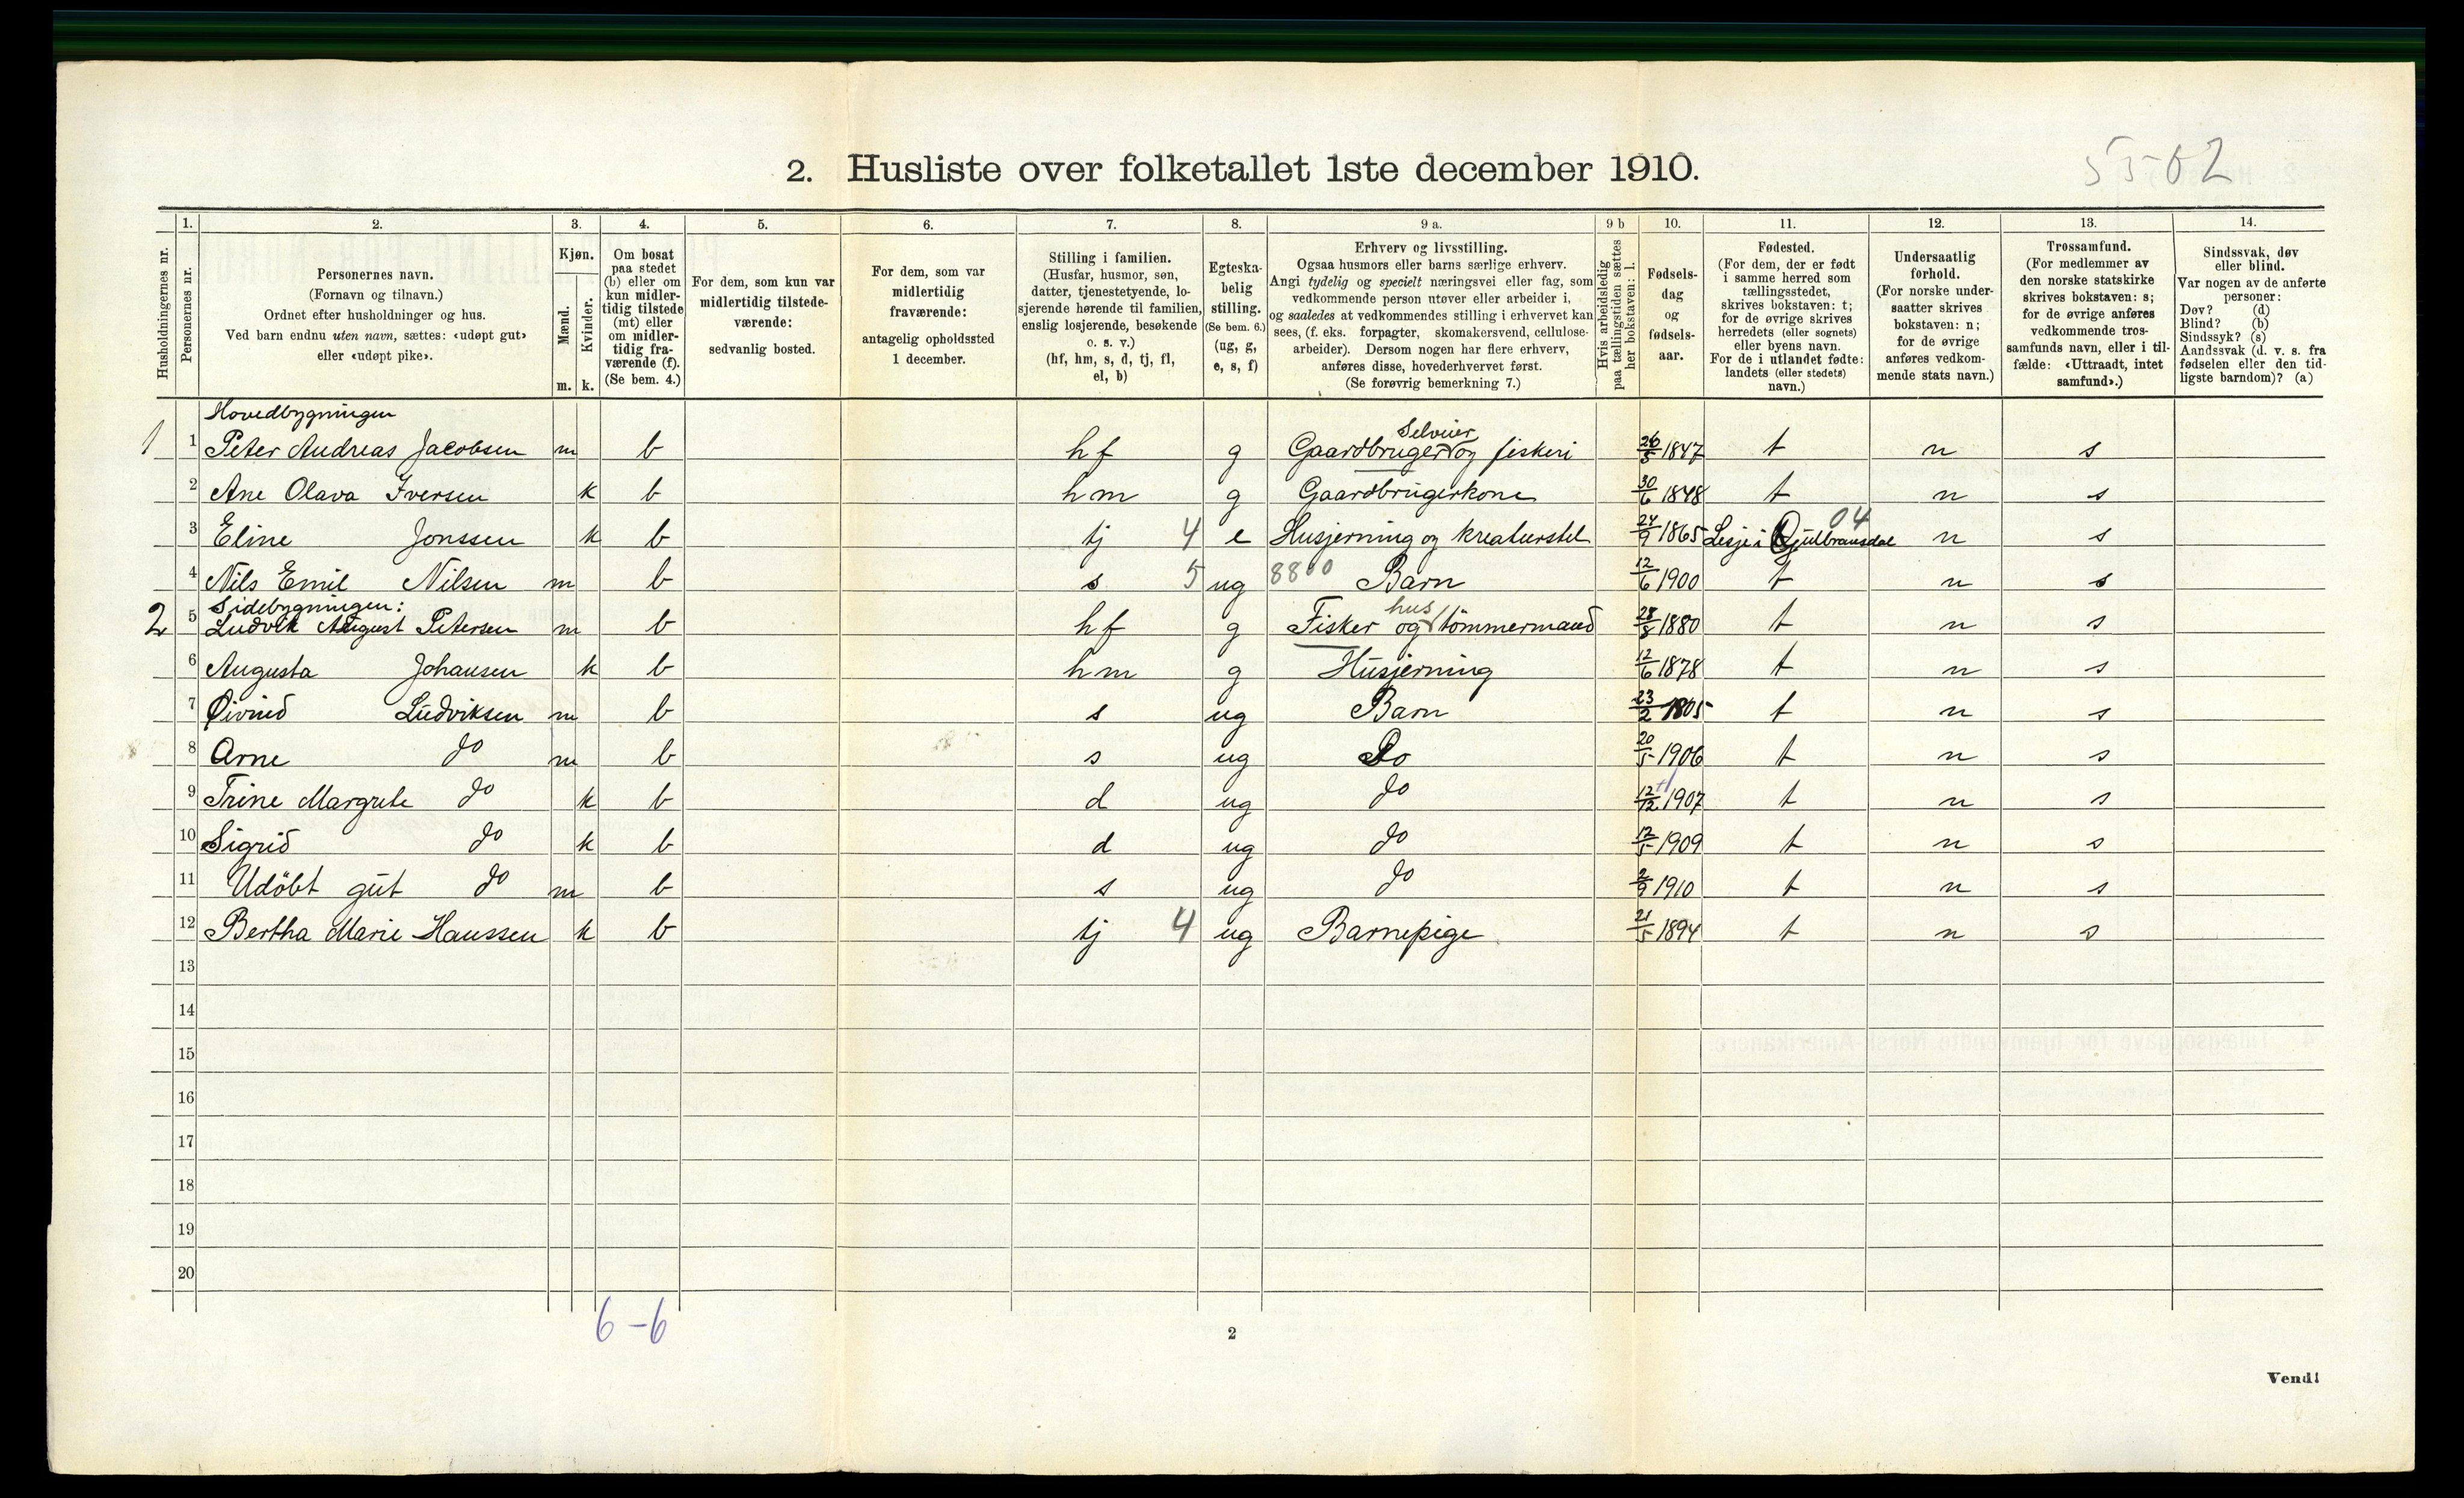 2. Husliste over folketallet 1ste december 1910.
5502
Husholdningernes nr.
1. Personernes nr.
2. Personernes navn.
(Fornavn og tilnavn.)
Ordnet efter husholdninger og hus.
Ved barn endnu uten navn, sættes: «udøpt gut»
eller «udøpt pike».
3. Kjøn.
Mænd. m.
Kvinder. k.
4. Om bosat
paa stedet
(b) eller om
kun midler-
tidig tilstede
(mt) eller
om midler-
tidig fra-
værende (f).
(Se bem. 4.)
5. For dem, som kun var
midlertidig tilstede-
værende:
sedvanlig bosted.
6. For dem, som var
midlertidig
fraværende:
antagelig opholdssted
1 december.
7. Stilling i familien.
(Husfar, husmor, søn,
datter, tjenestetyende, lo-
sjerende hørende til familien,
enslig losjerende, besøkende
o. s. v.)
(hf, hm, s, d, tj, fl,
el, b)
8. Egteska-
belig
stilling.
(Se bem. 6.)
(ug, g,
e, s, f)
9 a. Erhverv og livsstilling.
Ogsaa husmors eller barns særlige erhverv.
Angi tydelig og specielt næringsvei eller fag, som
vedkommende person utøver eller arbeider i,
og saaledes at vedkommendes stilling i erhvervet kan
sees, (f. eks. forpagter, skomakersvend, cellulose-
arbeider). Dersom nogen har flere erhverv,
anføres disse, hovederhvervet først.
(Se forøvrig bemerkning 7.)
9 b Hvis arbeidsledig
paa tællingstiden sættes
her bokstaven: l.
10. Fødsels-
dag
og
fødsels-
aar.
11. Fødested.
(For dem, der er født
i samme herred som
tællingsstedet,
skrives bokstaven: t;
for de øvrige skrives
herredets (eller sognets)
eller byens navn.
For de i utlandet fødte:
landets (eller stedets)
navn.)
12. Undersaatlig
forhold.
(For norske under-
saatter skrives
bokstaven: n;
for de øvrige
anføres vedkom-
mende stats navn.)
13. Trossamfund.
(For medlemmer av
den norske statskirke
skrives bokstaven: s;
for de øvrige anføres
vedkommende tros-
samfunds navn, eller i til-
fælde: «Uttraadt, intet
samfund».)
14. Sindssvak, døv
eller blind.
Var nogen av de anførte
personer:
Døv? (d)
Blind? (b)
Sindssyk? (s)
Aandssvak (d. v. s. fra
fødselen eller den tid-
ligste barndom)? (a)
Hovedbygningen
1 1 Peter Andreas Jacobsen m b hf g Gaardbruger Selveier og fiskeri 26/5 1847 t n s
2 Ane Olava Iversen k b hm g Gaardbrugerkone 30/6 1848 t n s
3 Eline Jonssen k b tj 4 e Husjerning og kreaturstel 24/9 1865 Lesje i Gulbransdal 04 n s
4 Nils Emil Nilsen m b s 5 ug 8800 Barn 12/6 1900 t n s
Sidebygningen:
2 5 Ludvik August Petersen m b hf g Fisker og hustömmermand 28/8 1880 t n s
6 Augusta Johansen k b hm g Husjerning 12/6 1878 t n s
7 Øivind Ludviksen m b s ug Barn 23/2 1905 t n s
8 Arne do m b s ug Do 20/5 1906 t n s
9 Trine Margrete do k b d ug do 12/12 1907 t n s
10 Sigrid do k b d ug do 12/5 1909 t n s
11 Udöbt gut do m b s ug do 2/9 1910 t n s
12 Bertha Marie Hanssen k b tj 4 ug Barnepige 21/5 1894 t n s
13
14
15
16
17
18
19
20
6-6
2
Vend!